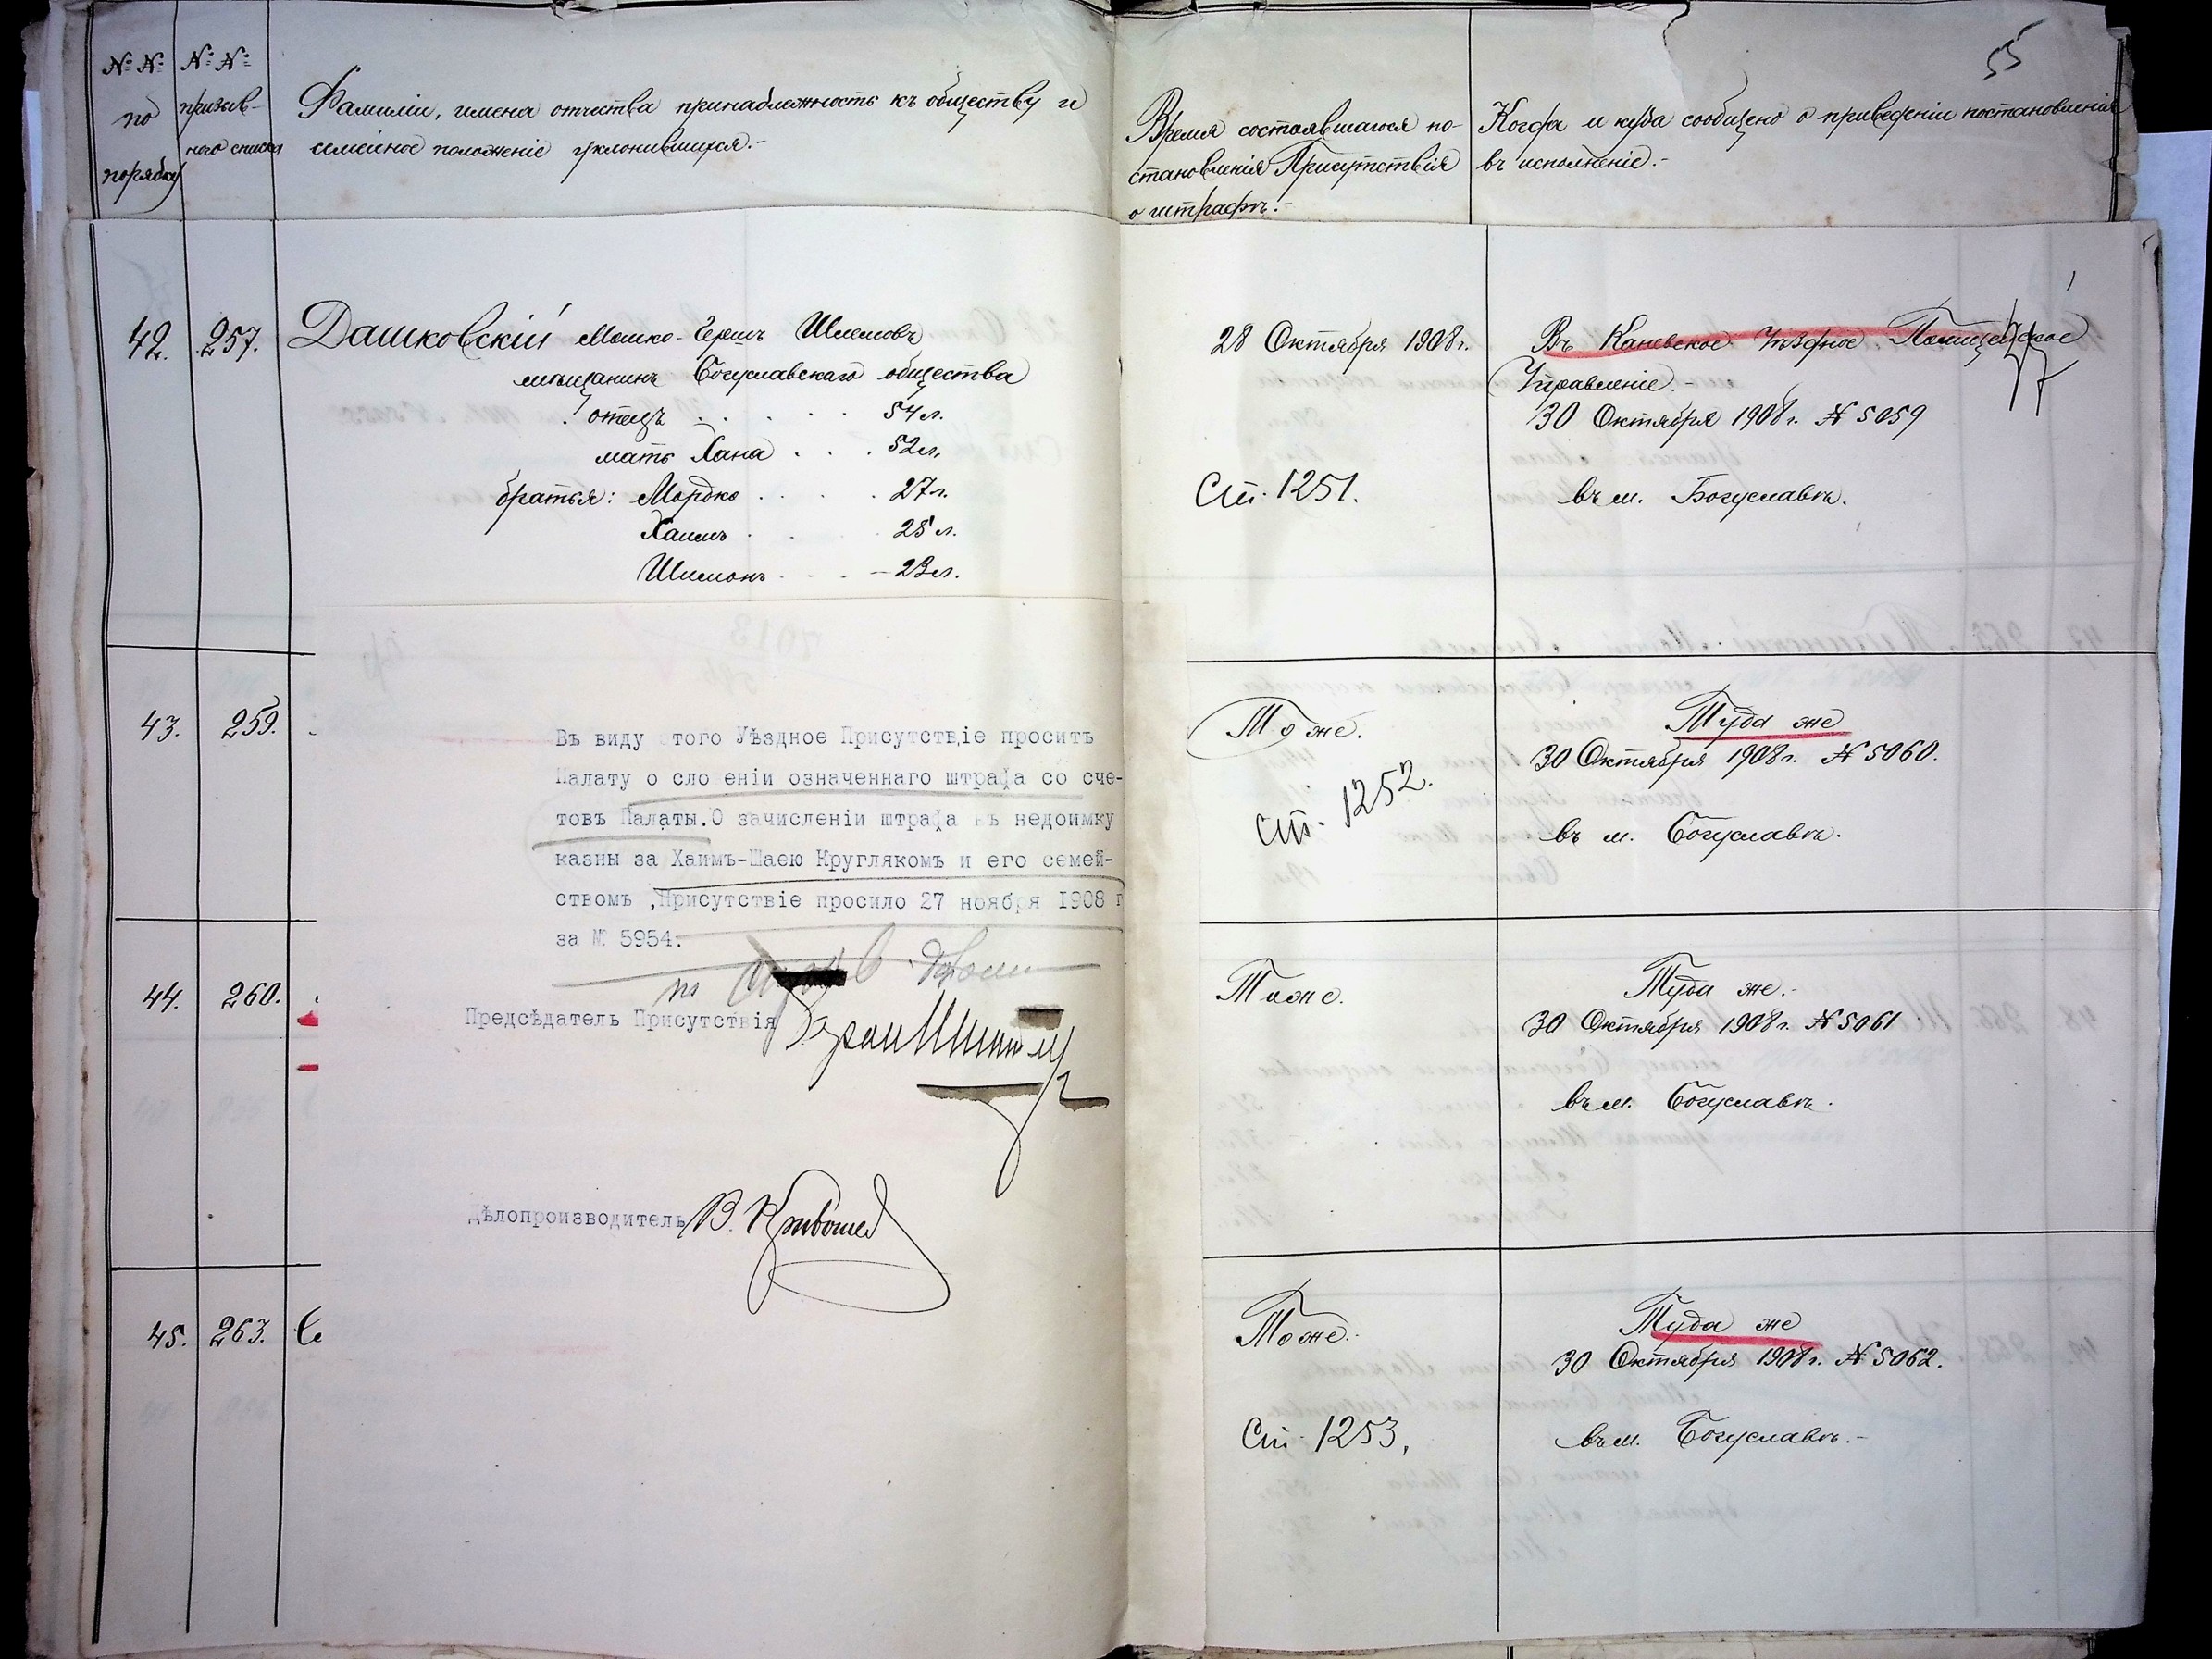 55
№№ по порядку
№№ призыв-
наго списка
Фамиліи, имена отчества принадлежность къ обществу и
семейное положеніе уклонившихся.-
Время состоявшагося по-
становленія Присутствія
о штрафѣ.-
Когда и куда сообщено о приведеніи постановленія
въ исполненіе.-
42. 257. Дашковскій Мошко-Гершъ Шлемовъ
мѣщанинъ Богуславскаго общества
отецъ . . . . . 54 л.
мать Хана . . . 52 л.
братья: Мордко . . . . 27 л.
Хаимъ . . . 25 л.
Шимонъ . . . - 23 л.
28 Октября 1908 г.
Ст. 1251.
Въ Каневское Уѣздное Полицейское
Управленіе.-
30 Октября 1908 г. № 5059
въ м. Богуславѣ.
43. 259.
Въ виду этого Уѣздное Присутствіе проситъ
Палату о сло еніи означеннаго штрафа со сче-
товъ Палаты.О зачисленіи штрафа въ недоимку
казны за Хаимъ-Шаею Круглякомъ и его семей-
ствомъ ,Присутствіе просило 27 ноября 1908 г
за № 5954.
Предсѣдатель Присутствія
Дѣлопроизводитель В.
Тоже.
Ст. 1252.
Туда же
30 Октября 1908 г. № 5060.
въ м. Богуславѣ.
44. 260.
Тоже.
Туда же.-
30 Октября 1908 г. № 5061
въ м. Богуславѣ.
45. 263.
Тоже.-
Ст. 1253.
Туда же
30 Октября 1908 г. № 5062.
въ м. Богуславѣ.-